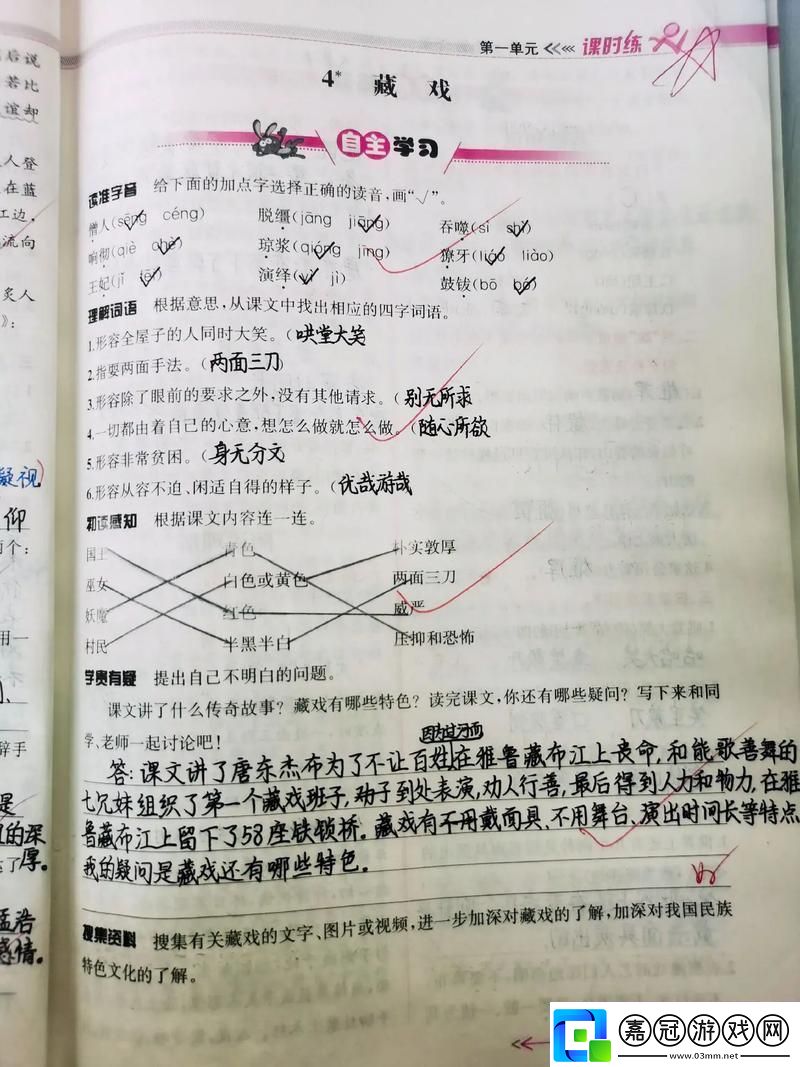 第一单元 课时练
4* 藏戏
自主学习
读准字音 给下面的加点字选择正确的读音,画“√”。
僧人(sēng céng) 脱缰(jāng jiāng) 吞噬(sì shì)
响彻(qiè chè) 琼浆(qióng jīng) 獠牙(liáo liào)
王妃(jǐ fēi) 演绎(yì jì) 鼓钹(bō bó)
理解词语 根据意思,从课文中找出相应的四字词语。
1.形容全屋子的人同时大笑。(哄堂大笑
2.指耍两面手法。(两面三刀)
3.形容除了眼前的要求之外,没有其他请求。(别无所求
4.一切都由着自己的心意,想怎么做就怎么做。(随心所欲
5.形容非常贫困。(身无分文
6.形容从容不迫、闲适自得的样子。(优哉游哉
初读感知 根据课文内容连一连。
国王 青色 朴实敦厚
巫女 白色或黄色 两面三刀
妖魔 红色 威严
村民 半黑半白 压抑和恐怖
学贵有疑 提出自己不明白的问题。
课文讲了什么传奇故事?藏戏有哪些特色?读完课文,你还有哪些疑问?写下来和同
学、老师一起讨论吧!
因为过河而
答:课文讲了唐东杰布为了不让百姓在雅鲁藏布江上丧命,和能歌善舞的
七兄妹组织了第一个藏戏班子,到处表演,劝人行善,最后得到人力和物力,在雅
鲁藏布江上留下了58座铁锁桥。藏戏有不用戴面具、不用舞台、演出时间长等特点
我的疑问是藏戏还有哪些特色。
搜集资料 搜集有关藏戏的文字、图片或视频,进一步加深对藏戏的了解,加深对我国民族
特色文化的了解。
后说
若比
谊却
人登
在蓝
江边,
流向
炙人
》:
凝视)
仰
两个:
用一
辞手
是
的深
厚。
孟浩
感情。
嘉冠游戏网
www.03mm.net